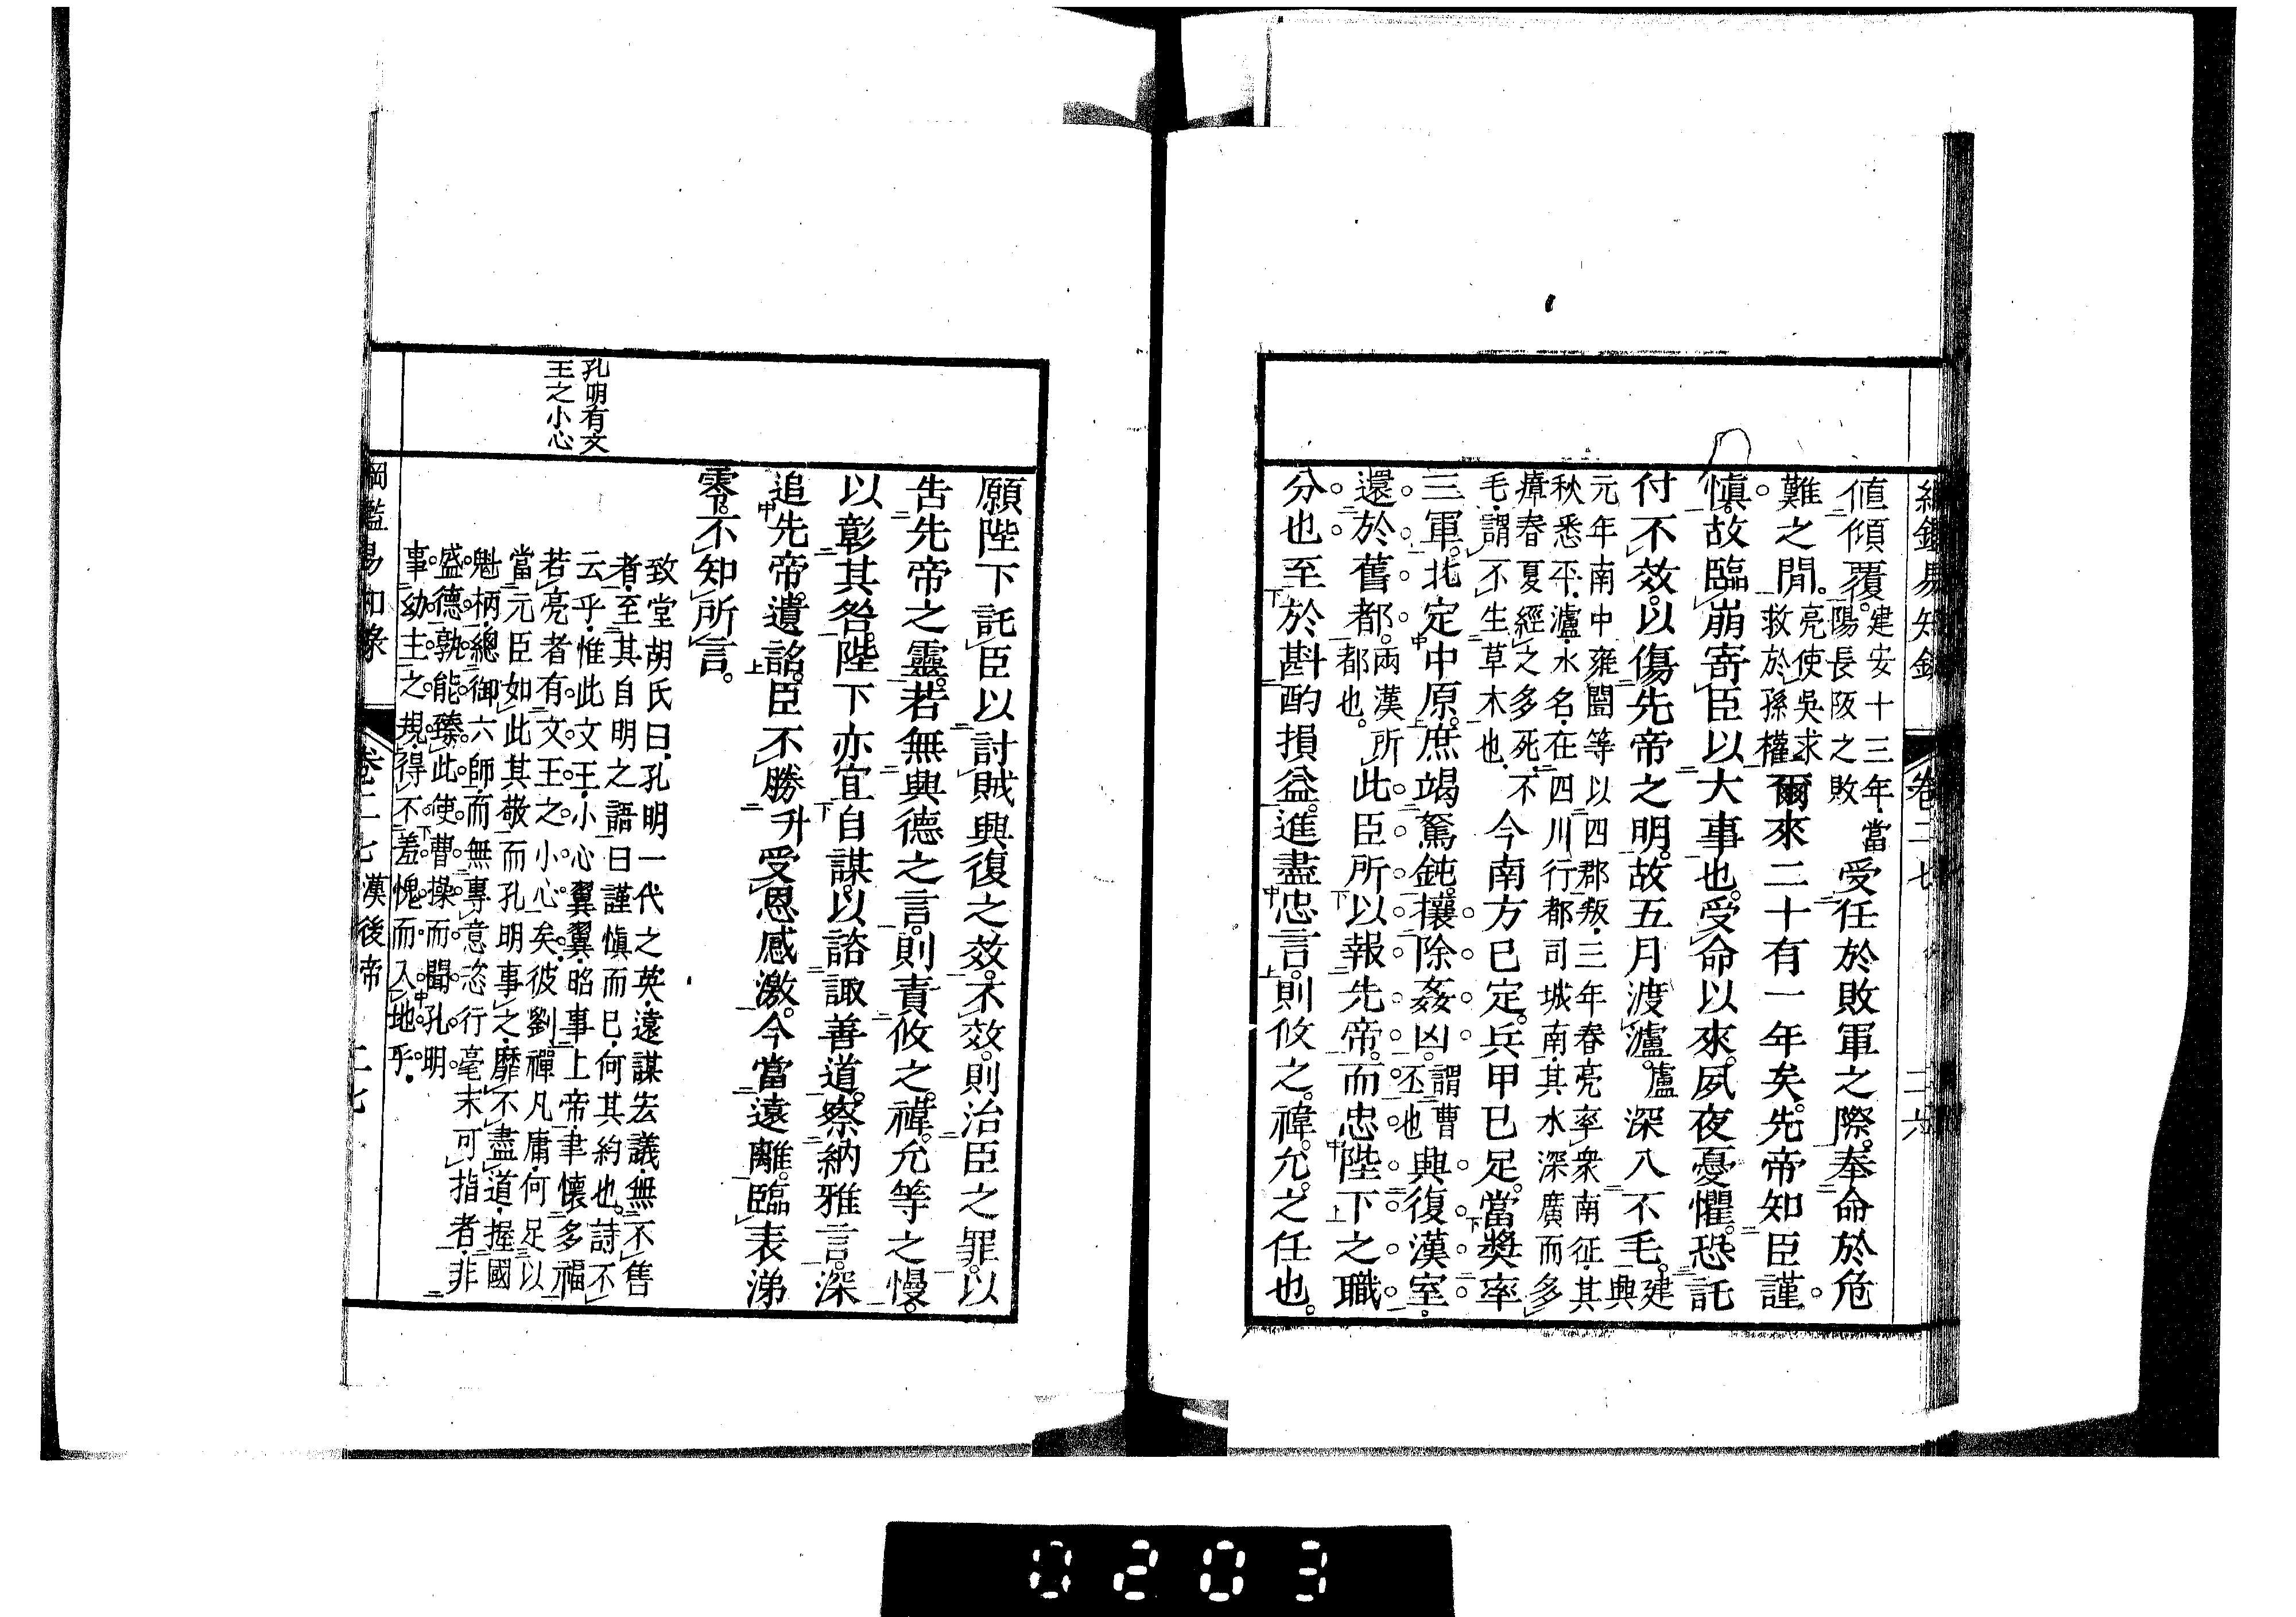 綱鑑易知録 卷二七 二六
値傾覆。建安十三年、當陽長阪之敗受任於敗軍之際。奉命於危
難之閒。亮使吳求救於孫權爾來二十有一年矣。先帝知臣謹
愼。故臨崩寄臣以大事也。受命以來。夙夜憂懼。恐託
付不效。以傷先帝之明。故五月渡瀘。瀘深入不毛。建興
元年南中雍闓等以四郡叛、三年春亮率衆南征、其
秋悉平、瀘、水名、在四川行都司城南、其水深廣而多
瘴春夏經之多死、不
毛、謂不生草木也、今南方已定。兵甲已足。當奬率
三軍。北定中原。庶竭駑鈍。攘除姦凶。謂曹丕也興復漢室。
還於舊都。兩漢所都也。此臣所以報先帝。而忠陛下之職
分也。至於斟酌損益。進盡忠言。則攸之。禕。允。之任也。
願陛下託臣以討賊興復之效。不效。則治臣之罪。以
吿先帝之靈。若無興德之言。則責攸之。禕。允等之慢。
以彰其咎。陛下亦宜自謀。以諮諏善道。察納雅言。深
追先帝。遺詔。臣不勝升受恩感激。今當遠離。臨表涕
零。不知所言。
孔明有文
王之小心
致堂胡氏曰、孔明一代之英、遠謀宏議、無不售
者、至其自明之語曰謹愼而已、何其約也。詩不
云乎、惟此文王、小心翼翼、昭事上帝、聿懷多福、
若亮者有文王之小心矣、彼劉禪凡庸、何足以
當元臣如此其敬、而孔明事之、靡不盡道、握國
魁柄、總御六師、而無專意恣行毫末可指者、非
盛德孰能臻此、使曹操而聞孔明
事幼主之規、得不羞愧而入地乎、
綱鑑易知錄 卷二七 漢後帝 二七
0203